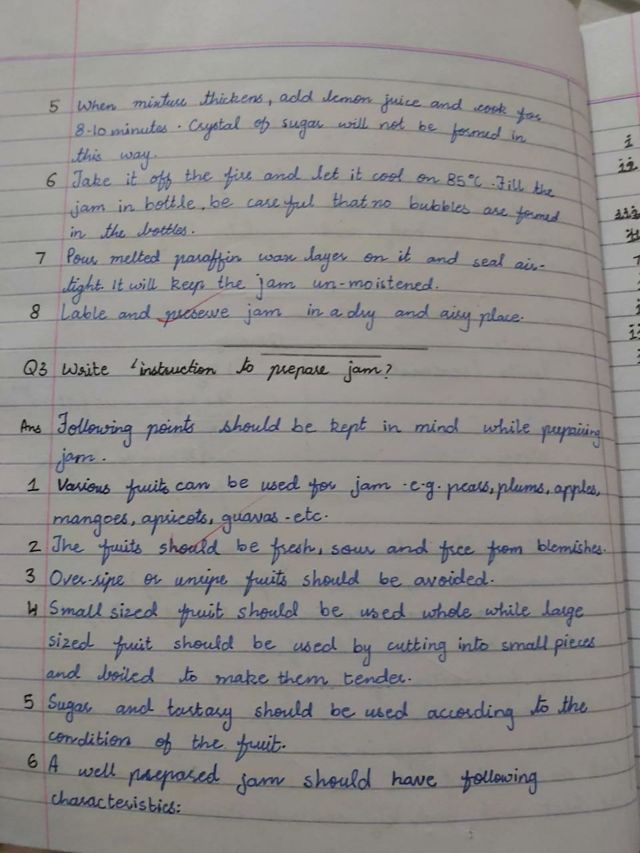 5 When mixture thickens, add lemon juice and cook for
8-10 minutes. Crystal of sugar will not be formed in
this way.
6 Take it off the fire and let it cool on 85°C. Fill the
jam in bottle, be careful that no bubbles are formed
in the bottles.
7 Pour melted paraffin wax layer on it and seal air-
tight. It will keep the jam un-moistened.
8 Lable and preseve jam in a dry and airy place.
Q3 Write instruction to prepare jam?
Ans Following points should be kept in mind while prepairing
jam.
1 Various fruits can be used for jam e.g. pears, plums, apples,
mangoes, apricots, guavas. etc.
2 The fruits should be fresh, sour and free from blemishes.
3 Over-ripe or unripe fruits should be avoided.
4 Small sized fruit should be used whole while large
sized fruit should be used by cutting into small pieces
and boiled to make them tender.
5 Sugar and tartary should be used according to the
condition of the fruit.
6 A well prepared jam should have following
characteristics:
i
ii
iii